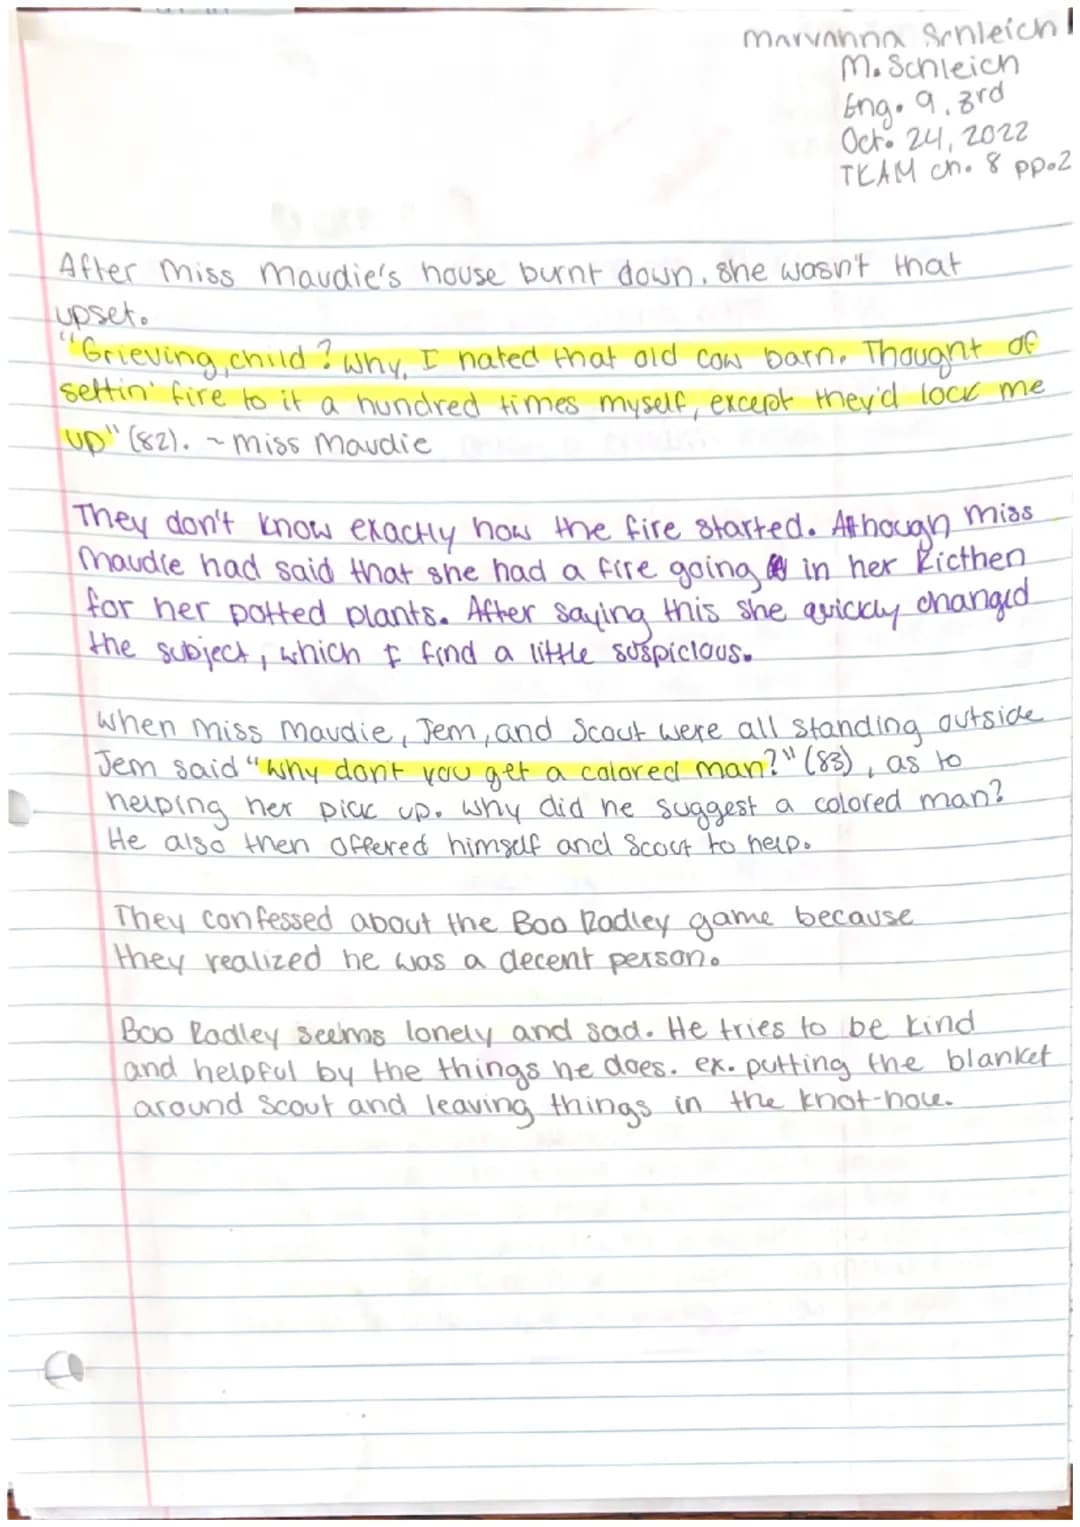 Maryanna Schleich
M. Schleich
Eng. 9, 3rd
Oct. 24, 2022
TKAM ch. 8 pp.2
After Miss Maudie's house burnt down, she wasn't that
upset.
"Grieving, child? Why, I hated that old cow barn. Thought of
settin' fire to it a hundred times myself, except they'd lock me
up" (82). ~ Miss Maudie
They don't know exactly how the fire started. Although Miss
Maudie had said that she had a fire going in her kicthen
for her potted plants. After saying this she quickly changed
the subject, which I find a little suspicious.
When Miss Maudie, Jem, and Scout were all standing outside
Jem said "why don't you get a colored man?" (83), as to
helping her pick up. Why did he suggest a colored man?
He also then offered himself and Scout to help.
They confessed about the Boo Radley game because
they realized he was a decent person.
Boo Radley seems lonely and sad. He tries to be kind
and helpful by the things he does. ex. putting the blanket
around Scout and leaving things in the knot-hole.